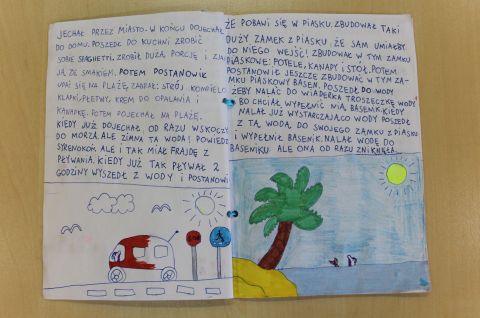 JECHAŁ PRZEZ MIASTO. W KOŃCU DOJECHAŁ
DO DOMU. POSZEDŁ DO KUCHNI ZROBIĆ
SOBIE SPAGHETTI. ZROBIŁ DUŻĄ PORCJĘ I ZJADŁ
JĄ ZE SMAKIEM. POTEM POSTANOWIŁ
IŚĆ SIĘ NA PLAŻĘ, ZABRAŁ: STRÓJ KĄPIELO
KLAPKI, PŁETWY, KREM DO OPALANIA I
KANAPKĘ. POTEM POJECHAŁ NA PLAŻĘ.
KIEDY JUŻ DOJECHAŁ, OD RAZU WSKOCZYŁ
DO MORZA. ALE ZIMNA TA WODA! POWIEDZ
SYRENOKOŃ ALE I TAK MIAŁ FRAJDĘ Z
PŁYWANIA. KIEDY JUŻ TAK PŁYWAŁ 2
GODZINY WYSZEDŁ Z WODY I POSTANOWI
ŻE POBAWI SIĘ W PIASKU. ZBUDOWAŁ TAKI
DUŻY ZAMEK Z PIASKU, ŻE SAM UMIAŁBY
DO NIEGO WEJŚĆ! ZBUDOWAŁ W TYM ZAMKU
PIASKOWE: FOTELE, KANAPY I STÓŁ. POTEM
POSTANOWIŁ JESZCZE ZBUDOWAĆ W TYM ZA-
MKU PIASKOWY BASEN. POSZEDŁ DO WODY
ŻEBY NALAĆ DO WIADERKA TROSZECZKĘ WODY
BO CHCIAŁ WYPEŁNIĆ NIĄ BASEN. KIEDY
NALAŁ JUŻ WYSTARCZAJĄCO WODY POSZEDŁ
Z TĄ WODĄ DO SWOJEGO ZAMKU Z PIASKU
I WYPEŁNIŁ BASENIK. NALAŁ WODĘ DO
BASENIKU ALE ONA OD RAZU ZNIKNĘŁA.